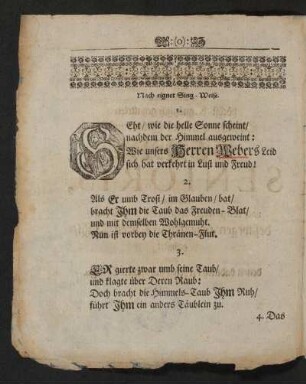 :(o):
Nach eigner Sing-Weise.
1.
SEht/ wie die helle Sonne scheint/
nachdem der Himmel ausgeweint:
Wie unsers Herren Webers Leid
sich hat verkehrt in Lust und Freud!
2.
Als Er umb Trost/ im Glauben/ bat/
bracht Ihm die Taub das Freuden-Blat/
und mit demselben Wohlgemuht.
Nun ist vorbey die Thränen-Flut.
3.
ER girrte zwar umb seine Taub/
und klagte über Deren Raub:
Doch bracht die Himmels-Taub Ihm Ruh/
führt Ihm ein anders Täublein zu.
4. Das